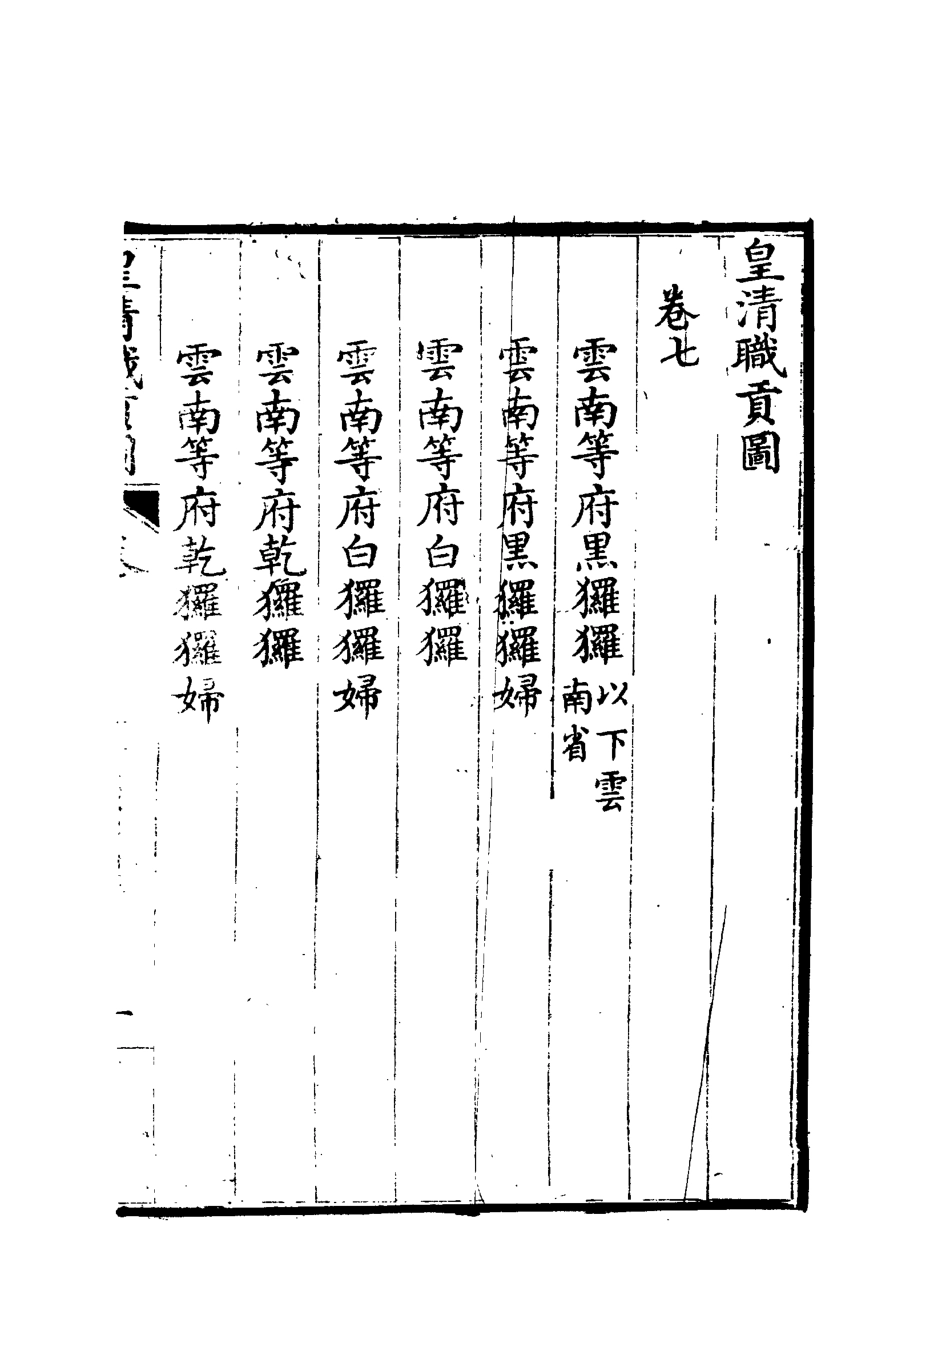 皇清職貢圖
卷七
雲南等府黑玀玀以下雲南省
雲南等府黑玀玀婦
雲南等府白玀玀
雲南等府白玀玀婦
雲南等府乾玀玀
雲南等府乾玀玀婦
皇清職貢圖
一